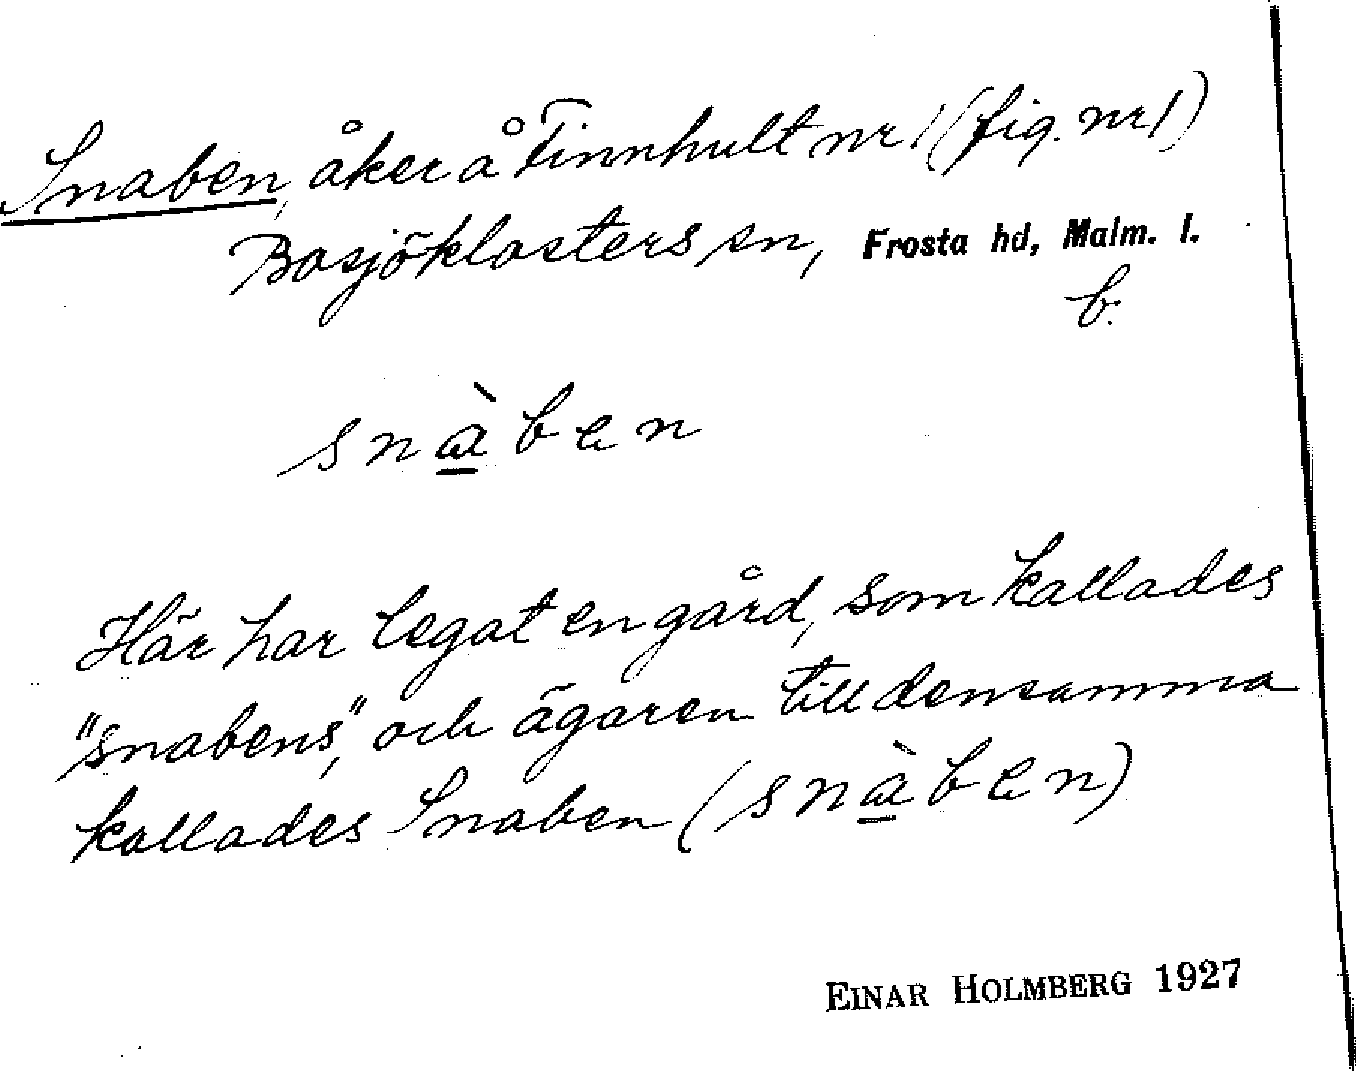 Snaben, åker å Finnhult nr 1 (fig. nr 1)
Bosjöklosters sn, Frosta hd, Malm. l.
b.
snàben
Här har legat en gård, som kallades
"snabens", och ägaren till densamma
kallades Snaben (snàben)
EINAR HOLMBERG 1927